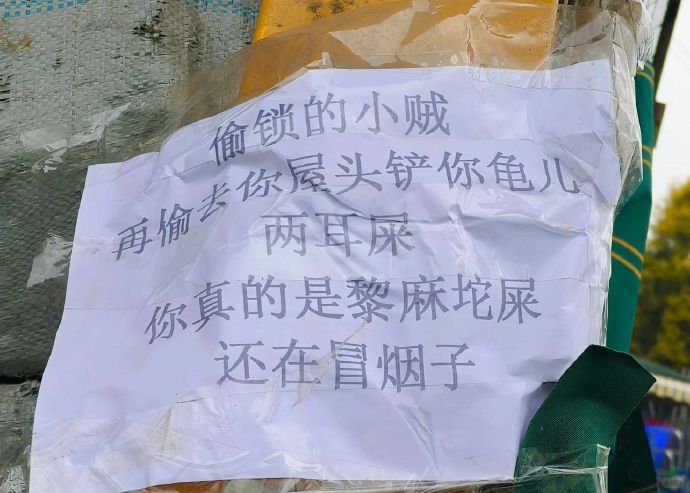 偷锁的小贼
再偷去你屋头铲你龟儿
两耳屎
你真的是黎麻坨屎
还在冒烟子